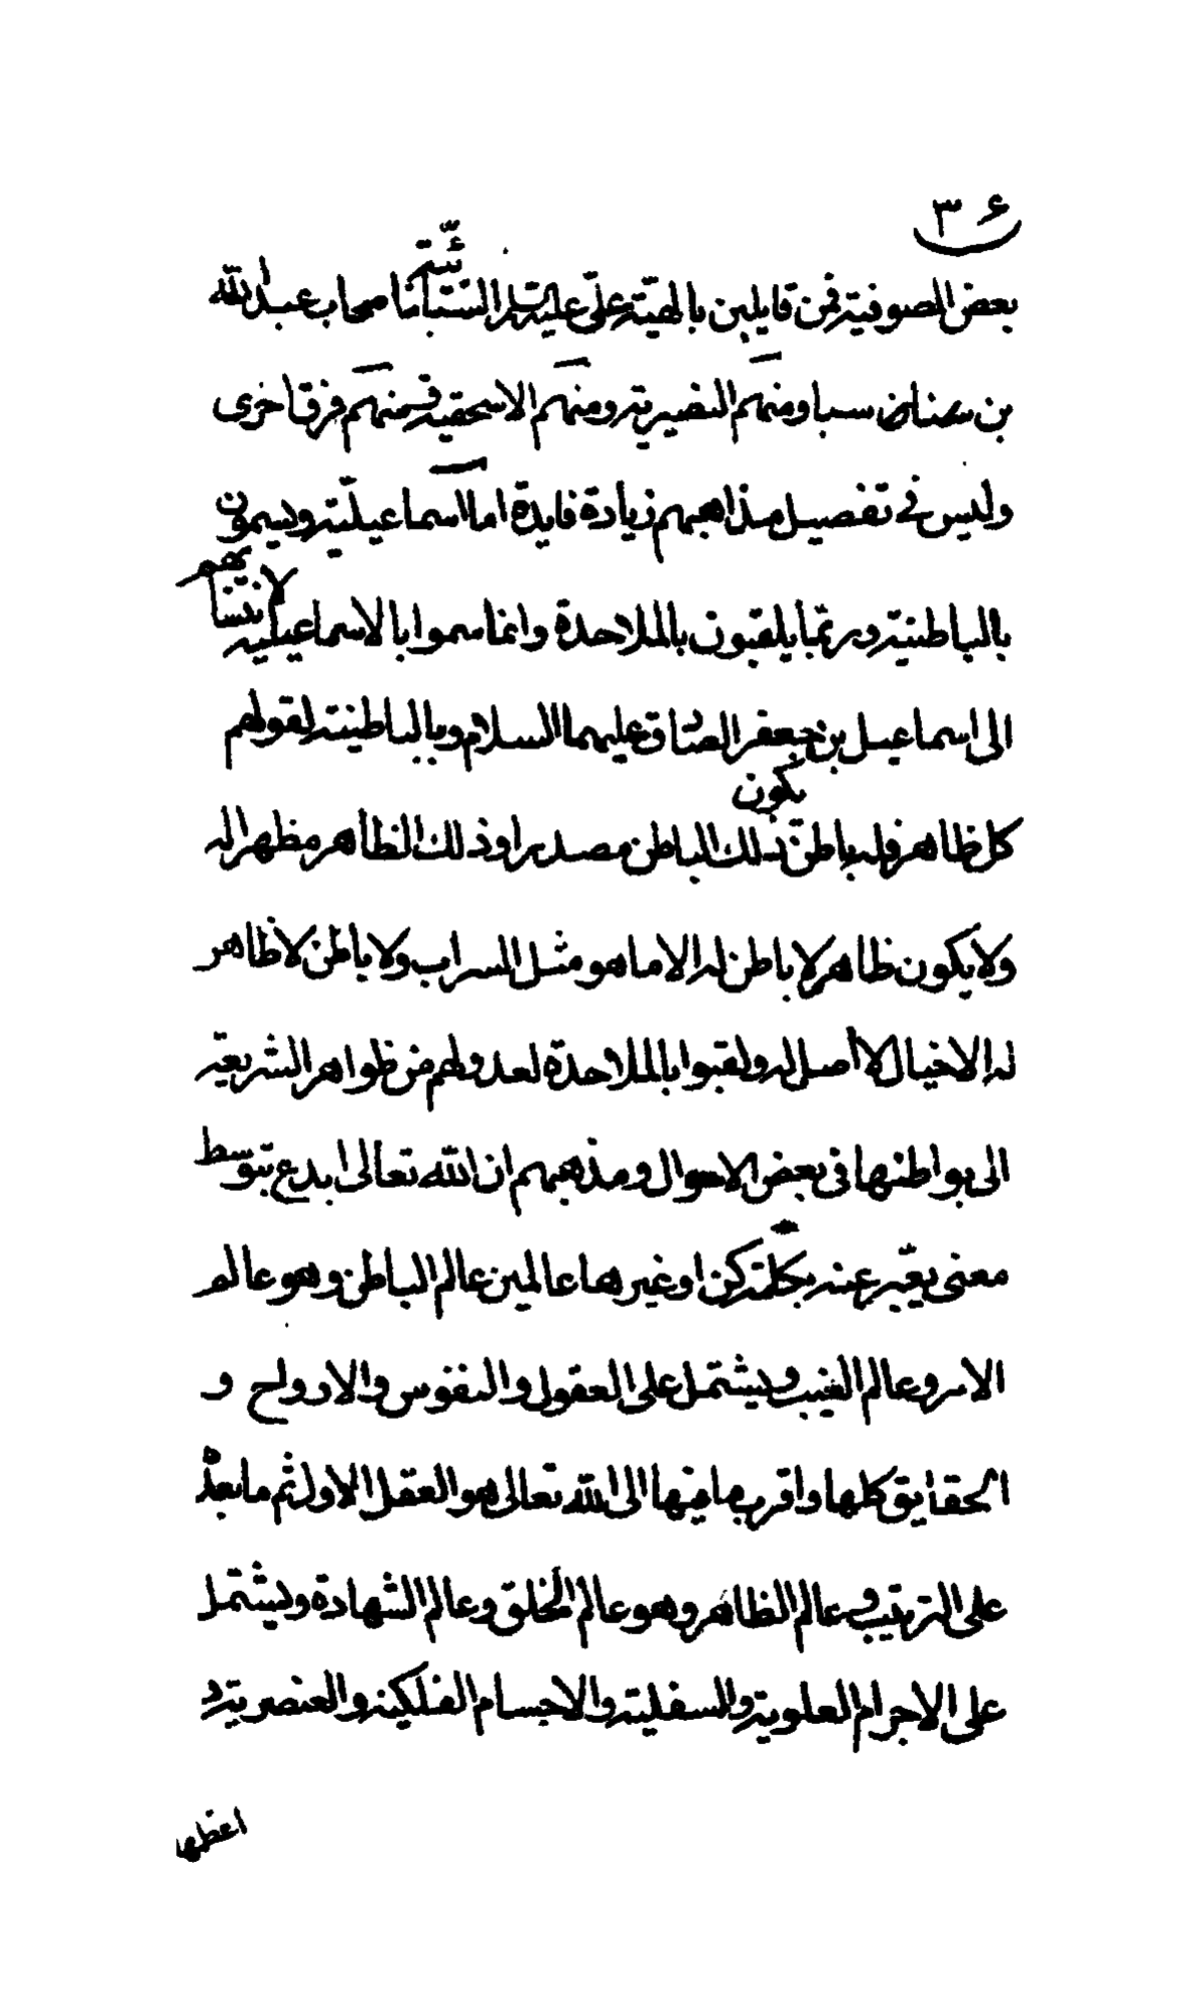 ٣٤
بعض الصوفية فمن قايلين بالهية على عليه السلم السبائية اصحاب عبدالله
بن سبا ومنهم النصيرية ومنهم الاسحقية ومنهم فرق اخرى
وليس فى تفصيل مذاهبهم زيادة فايدة اما الاسماعيلية ويسمون
بالباطنية وربما يلقبون بالملاحدة وانما سموا بالاسماعيلية لانتسابهم
الى اسماعيل بن جعفر الصادق عليهما السلام وبالباطنية لقولهم
كل ظاهر فله باطن يكون ذلك الباطن مصدرا وذلك الظاهر مظهرا له
ولا يكون ظاهر لا باطن له الا ما هو مثل السراب ولا باطن لا ظاهر
له الا خيال لا اصل له ولقبوا بالملاحدة لعدولهم من ظواهر الشريعة
الى بواطنها فى بعض الاحوال ومذهبهم ان الله تعالى ابدع بتوسط
معنى يعبر عنه بكلمة كن او غيرها عالمين عالم الباطن وهو عالم
الامر وعالم الغيب ويشتمل على العقول والنفوس والارواح و
الحقايق كلها واقرب ما فيها الى الله تعالى هو العقل الاول ثم ما بعده
على الترتيب وعالم الظاهر وهو عالم الخلق وعالم الشهادة ويشتمل
على الاجرام العلوية والسفلية والاجسام الفلكية والعنصرية و
اعظمها